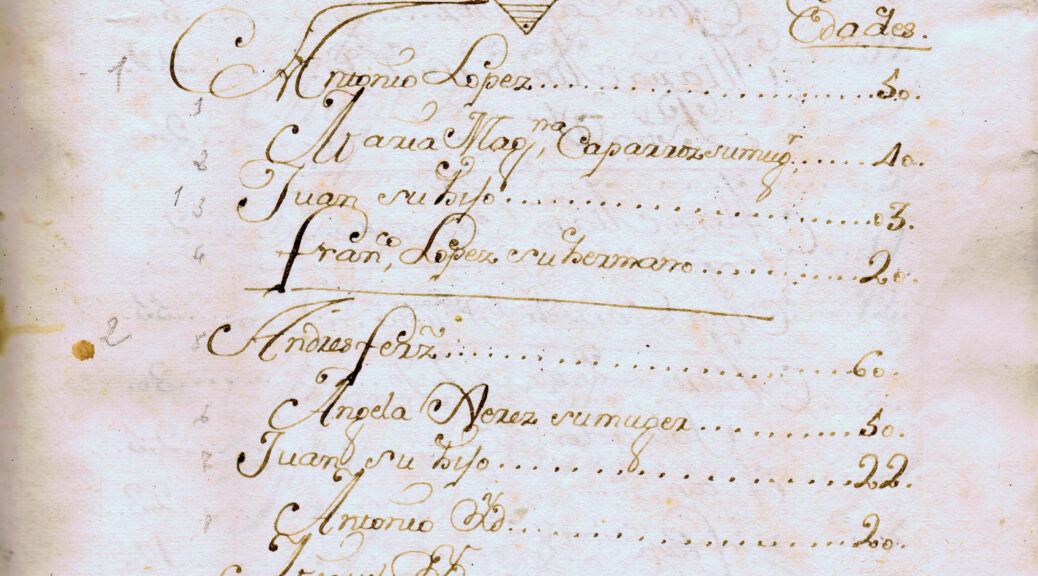 Edades.
1 Antonio Lopez 50.
1
Maria Mag.na Caparroz su mug.r 40.
2
1 3 Juan su hijo 03.
4 fran.co Lopez su hermano 20.
2
5 Andres ferz 60.
6 Angela Perez su muger 50.
7 Juan su hijo 22.
8 Antonio Yd. 20.